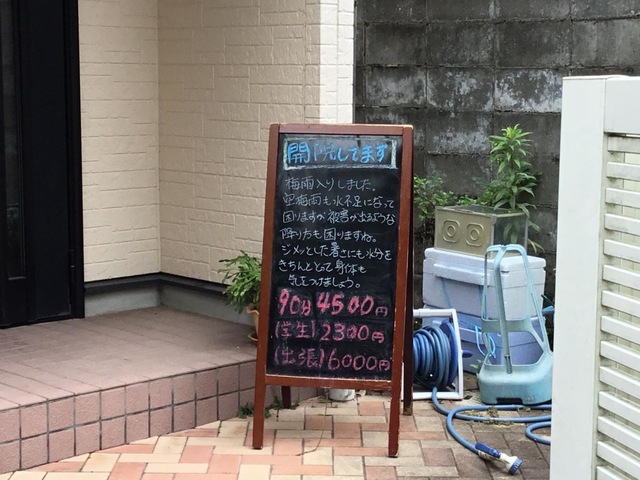 開院してます
梅雨入りしました。
空梅雨も水不足になって
困りますが被害が出るような
降り方も困りますね。
ジメッとした暑さにも水分を
きちんととって身体も
気をつけましょう。
90分 4500円
(学生) 2300円
(出張) 6000円